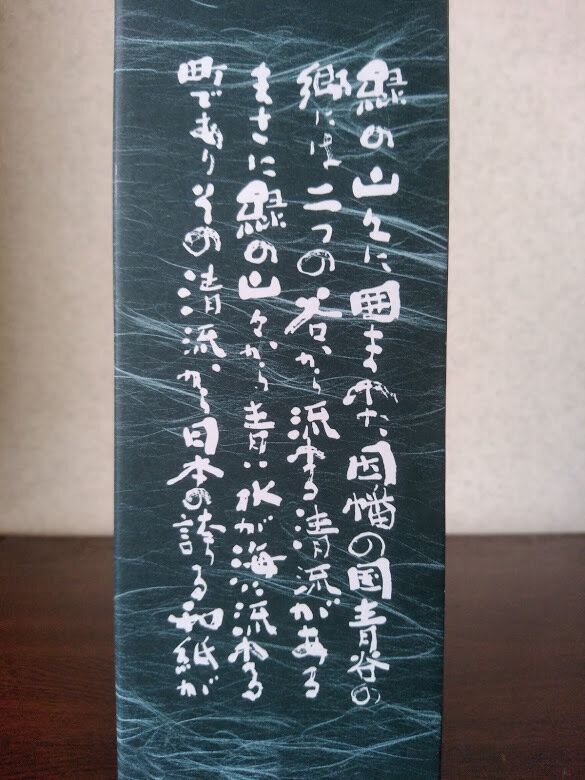 緑の山々に囲まれた因幡の国青谷の
郷には二つの谷から流れる清流がある
まさに緑の山々から青い水が海に流れる
町でありその清流から日本の誇る和紙が